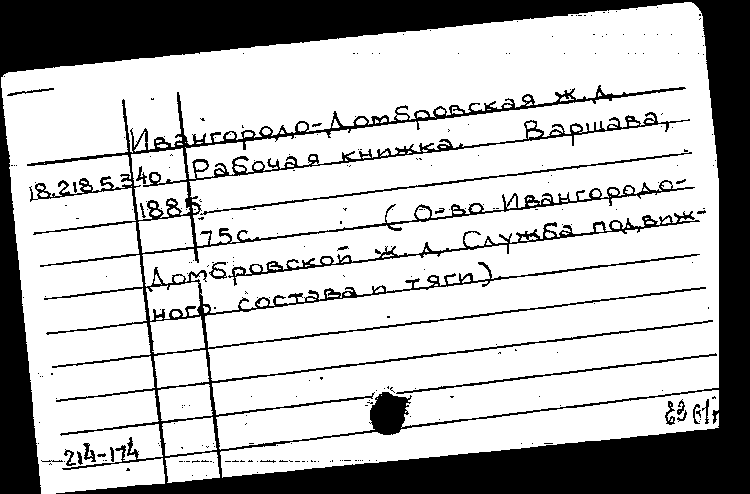 Ивангородо-Домбровская ж.д.
18.218.5.340. Рабочая книжка. Варшава,
1885.
75с. (О-во Ивангородо-
Домбровской ж. д. Служба подвиж-
ного состава и тяги).
214-174